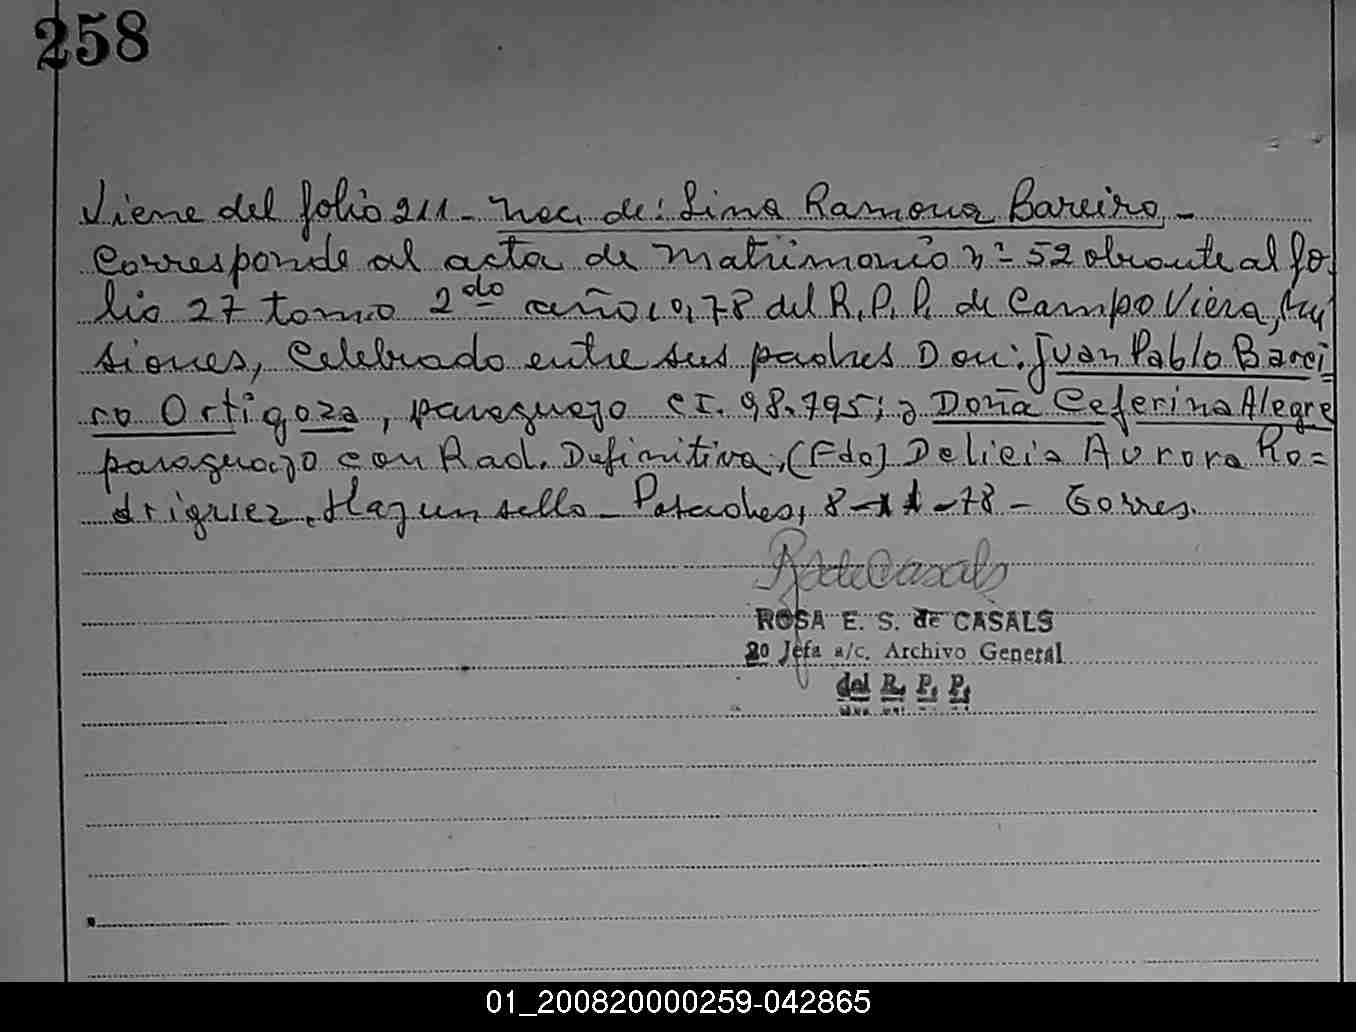 258
Viene del folio 211 - nac. de: Lina Ramona Bareiro. -
Corresponde al acta de matrimonio nº 52 obrante al fo-
lio 27 tomo 2do año 1978 del R. P. P. de Campo Viera, Mi
siones, Celebrado entre sus padres Don: Juan Pablo Barei
ro Ortigoza, paraguayo CI. 98.795; y Doña Ceferina Alegre
paraguayo con Rad. Definitiva. (Fdo) Delicia Aurora Ro=
driguez. Hay un sello - Posadas, 8-11-78 - Torres.
R de Casals
ROSA E. S. de CASALS
2o Jefa a/c. Archivo General
del R. P. P.
01_200820000259-042865